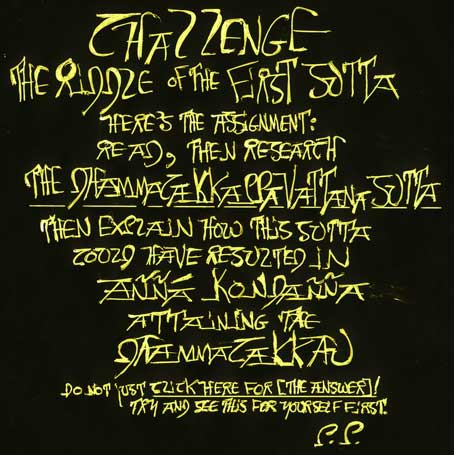 CHALLENGE
THE RIDDLE OF THE FIRST SUTTA
HERE'S THE ASSIGNMENT:
READ, THEN RESEARCH
THE DHAMMACAKKAPPAVATTANA SUTTA
THEN EXPLAIN HOW THIS SUTTA
COULD HAVE RESULTED IN
AÑÑĀ KONDAÑÑA
ATTAINING THE
DHAMMACAKKAU
DO NOT JUST CLICK HERE FOR [THE ANSWER]!
TRY AND SEE THIS FOR YOURSELF FIRST.